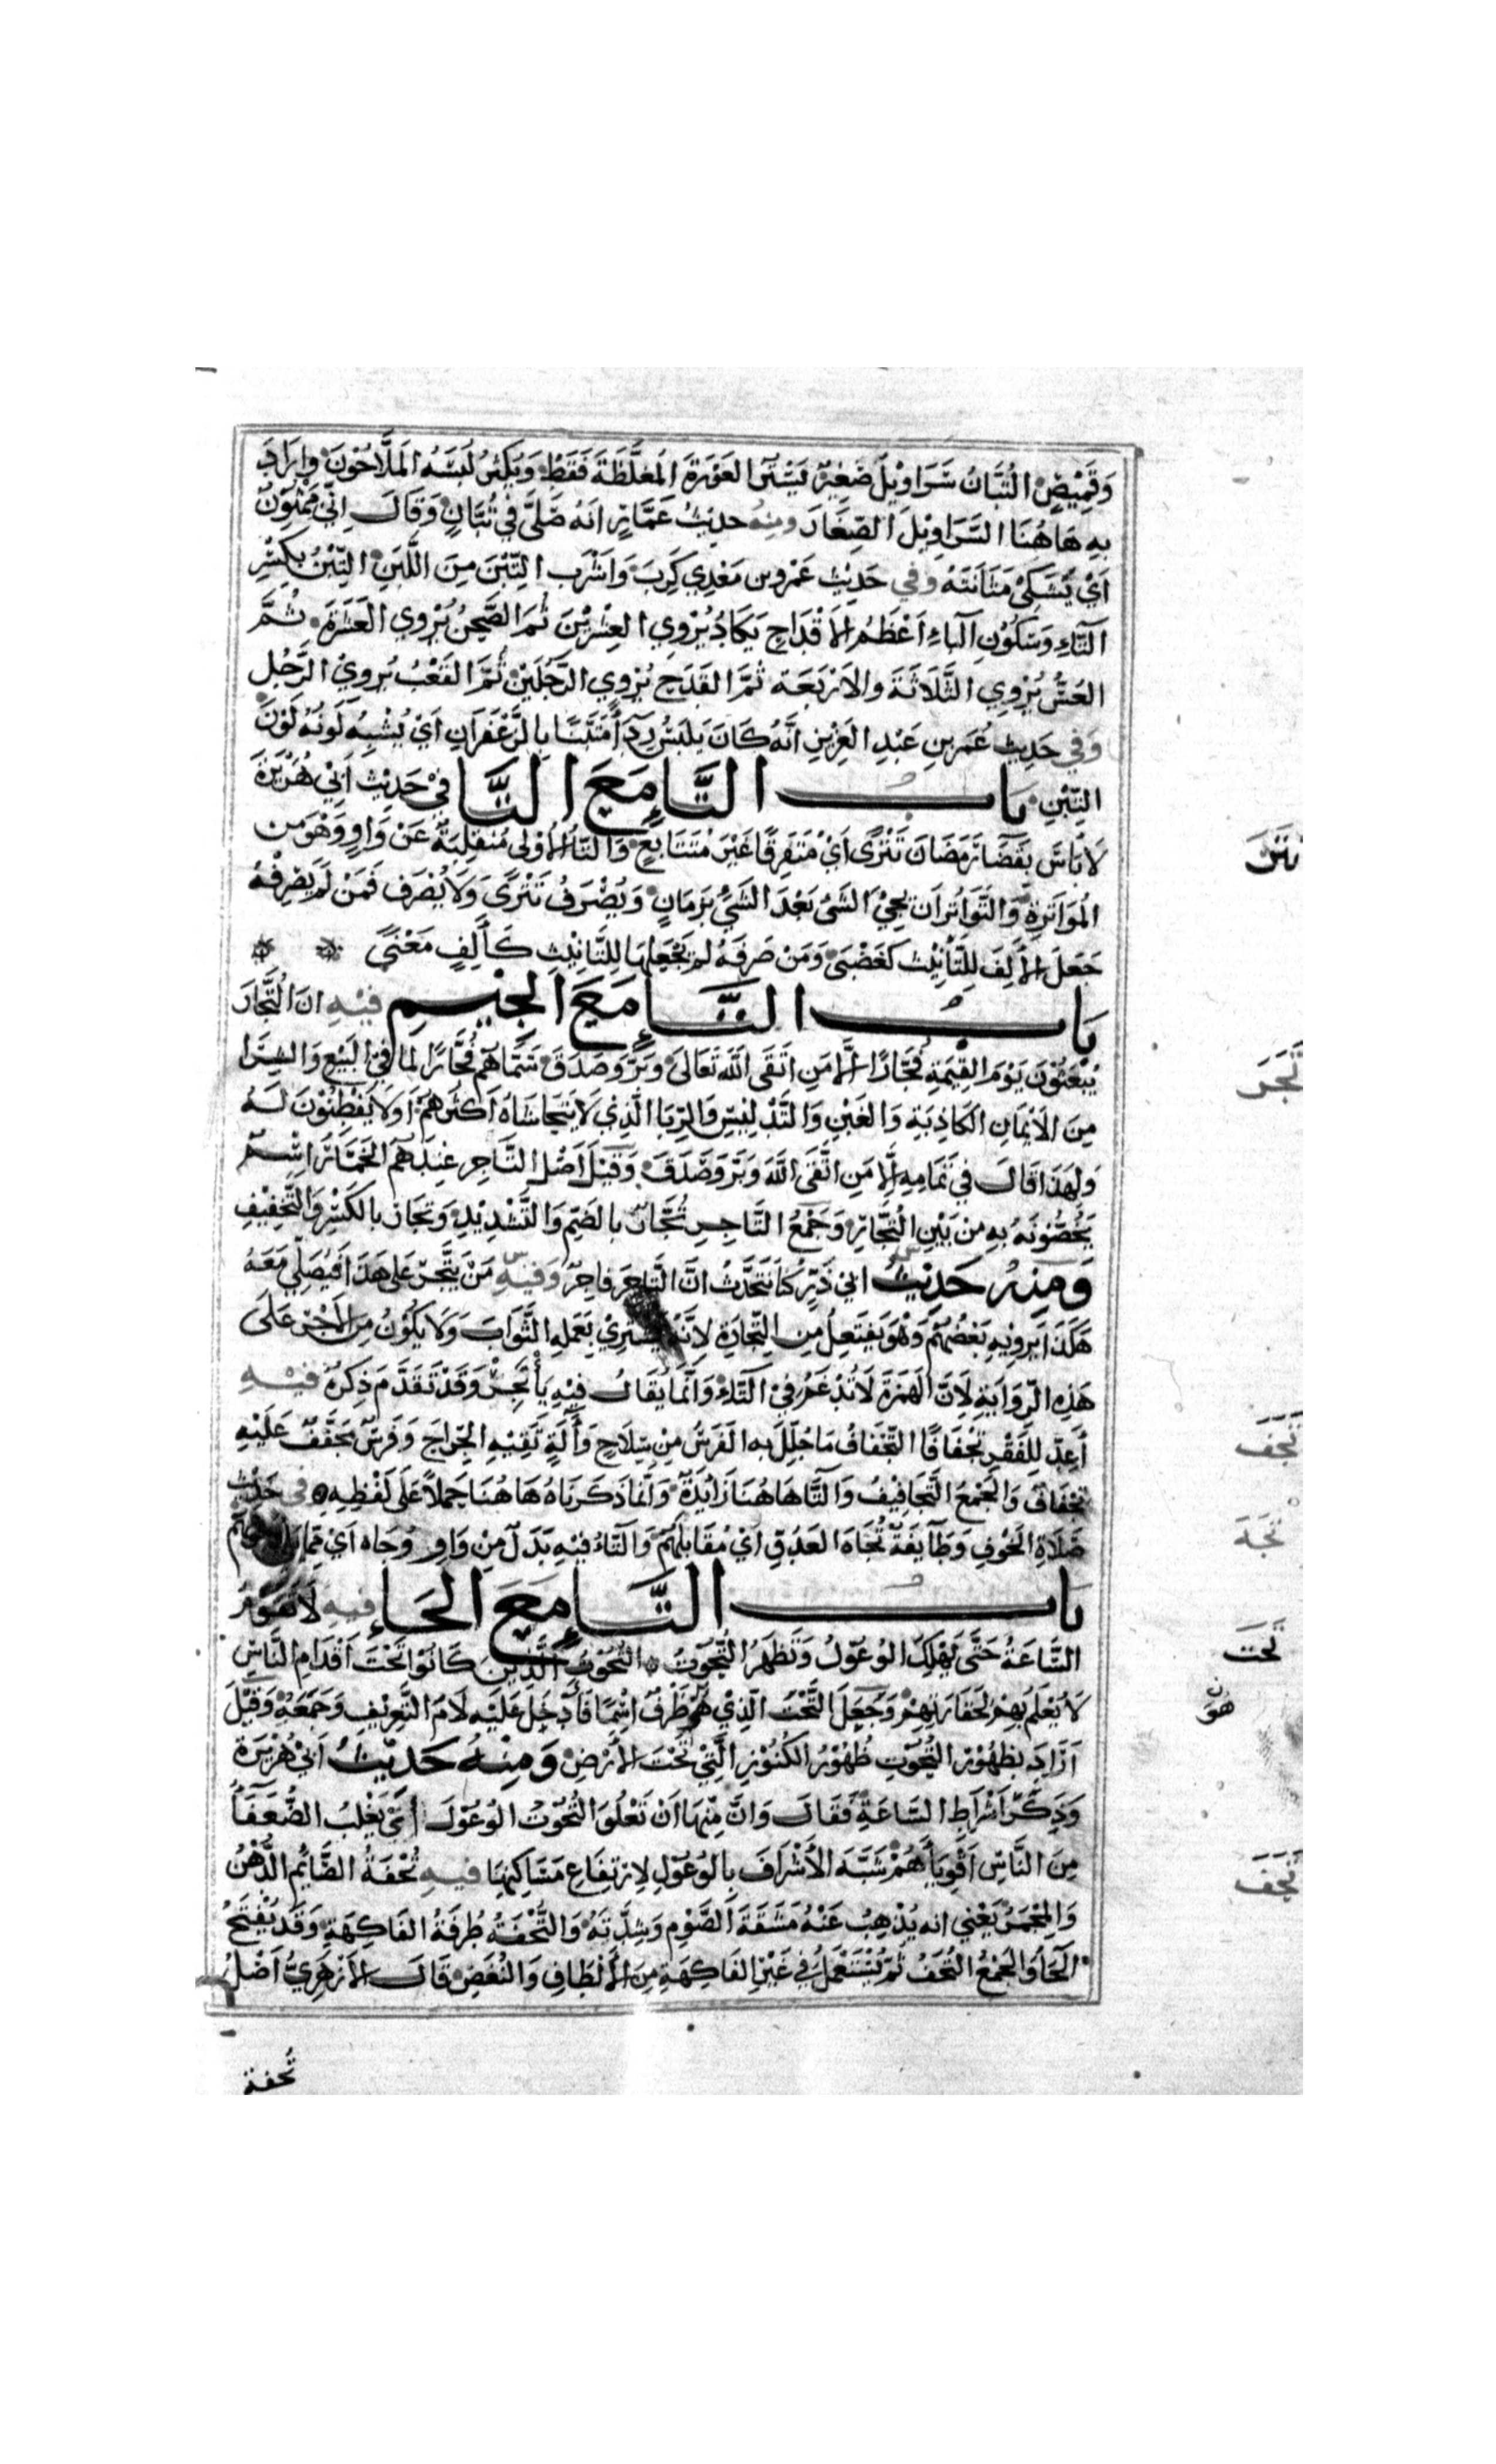 وَقَمِيْصٍ التُّبَّانُ سَرَاوِيْلُ صَغِيْرٌ يَسْتُرُ العَوْرَةَ المُغَلَّظَةَ فَقَطْ وَيُكْثِرُ لُبْسَهُ المَلَّاحُوْنَ وَارَادَ
بِهِ هَاهُنَا السَّرَاوِيْلَ الصِّغَارَ ومنه حديثُ عَمَّارٍ انَهُ صَلَّى فِي تُبَّانٍ وَقَالَ اِنِّي مَمْثُوْنٌ
اَيْ يَشْتَكِيْ مَثَانَتَهُ وفي حَدِيْثِ عَمْرِو بن مَعْدِي كَرِبَ وَاشْرَب التِّبْنَ مِنَ اللَّبَنِ التِّبْنُ بِكَسْرِ
التَّاءِ وَسُكُوْنِ البَاءِ اَعْظَمُ الاَقْدَاحِ يَكَادُ يُرْوِي العِشْرِيْنَ ثُمَ الصَّحْنُ يُرْوِي العَشَرَةَ ثُمَّ
العُسُّ يُرْوِي الثَّلَاثَةَ وَالاَرْبَعَة ثُمَّ القَدَحَ يُرْوِي الرَّجُلَيْنِ ثُمَّ القَعْبُ يُروِي الرَّجُلَ
وَفي حَدِيث عُمَر بنِ عَبْدِ العَزِيْزِ اَنَّهُ كَانَ يَلبَسُ رِدَآءً مُتَبَّنًا بِالزَّعْفَرَانِ اَيْ يُشْبِهُ لَونُهُ لَوْنَ
التِّبْنِ بَابُ التَّاءِ مَعَ التَّا فِي حَدِيْث اَبِيْ هُرَيْرَةَ
لَا بَاسَ بِقَضَآءِ رَمَضَانَ تَتْرًى اَيْ مُتَفَرِقًا غَيْرَ مُتَتَابِعٍ وَالتَّاُ الاُوْلَى مُنْقَلِبَةٌ عَنْ وَاوٍ وَهْوَ مِن
المُوَاتَرَةِ وَالتَّوَاتُرُ اَن يَجِيْءَ الشَّيْءُ بَعْدَ الشَّيْءِ بِزَمَانٍ وَيُصْرَفُ تَتْرًى وَلَا يُصْرَف فَمَنْ لَمْ يَصْرِفْهُ
جَعَلَ الأَلِفَ لِلتَّأنِيْث كَغَضْبَى وَمَنْ صَرَفَهُ لم يَجْعَلهَا لِلتَّانِيْثِ كَأَلِفِ مَعْنًى
بَابُ التَّاءِ مَعَ الجِيْمِ فيْهِ انَ التُّجَّارَ
يُبْعَثُوْنَ يَوْمَ القِيٰمَةِ فُجَّارًا اِلَّا مَنِ اتَقَى اللّٰهَ تَعَالَى وَبَرَّ وَصَدَقَ سَمَّاهُم فُجَّارًا لِمَا فِي البَيْعِ وَالشِّرَا
مِنَ الاَيْمَانِ الكَاذِبَةِ وَالغَبْنِ وَالتَّدْلِيْسِ وَالرِّبَا الَّذِي لَا يَتَحَاشَاهُ اَكْثَرُهُمْ اَوْ لَا يَفْطِنُوْنَ لَهُ
وَلِهَذَا قَالَ فِي تَمَامِهِ اِلَّا مَنِ اتَّقَى اللّٰهَ وَبَرَّ وَصَدَقَ وَقِيْلَ اَصْلُ التَّاجِر عِنْدَهُمُ الخَمَّارُ اسْمٌ
يَخُصُّونَهُ بِهِ مِن بَيْنِ التُّجَّارِ وَجَمْعُ التَّاجِرِ تُجَّارٌ بِالضَمِّ وَالتَّشْدِيْدِ وَتِجَارٌ بِالكَسْرِ وَالتَّخْفِيْفِ
وَمِنْهُ حَدِيْثُ ابي ذَرٍّ كُنَّا نَتَحَدَّثُ انَّ التَّاجِرَ فاجِرٌ وَفيْهِ مَنْ يَتَّجِرُ عَلَى هَذَا فَيُصَلِّي مَعَهُ
هَكَذَا يَروِيْهِ بَعْضُهُمْ وَهُوَ يَفتَعِلُ مِن التِّجَارَةِ لِاَنَّهُ يَشْتَرِيْ بِعَمَلِهِ الثَّوَابَ وَلَا يَكُوْنُ مِنَ الاَجْرِ عَلَى
هَذِهِ الرِّوَايَةِ لِاَنَّ الهَمْزَةَ لَا تُدْغَمُ فِيْ التَّاءِ وَاِنَّمَا يُقَالُ فِيْهِ يَأْتَجِرُ وَقَدْ تَقَدَّمَ ذِكْرُهُ فيْهِ
أَعِدَّ لِلفَقْرِ تِجْفَافًا التِّجْفَافُ مَا جُلِّلَ بهِ الفَرَسُ مِنْ سِلَاحٍ وَأَلَةٍ تَقِيْهِ الجِرَاحَ وَفَرَسٌ مُجَفَّفٌ عَلَيْهِ
تِجْفَافٌ وَالجَمْعُ التَّجَافِيْفُ وَالتَّا هَاهُنَا زَائِدَةٌ وَاِنَّمَا ذَكَرنَاهُ هَاهُنَا حَمْلًا عَلَى لَفْظِهِ في حَدِيْثِ
صَلَاةِ الخَوْفِ وَطَآيِفَةٌ تُجَاهَ العَدُوِّ اَيْ مُقَابِلَهُمْ وَالتَّاءُ فيْهِ بَدَلٌ مِنْ وَاوِ وُجَاه اَيْ مِمَّا
بَابُ التَّاءِ مَعَ الحَاءِ فيه لَا تَقُوْمُ
السَّاعَةُ حَتَّى يَهْلِكَ الوُعُوْلُ وَتَظْهَرُ التُّحُوْتُ التُّحُوْتُ الَّذِيْنَ كَانُوْا تَحْتَ اَقْدَامِ النَّاسِ
لَا يُعْلَمُ بِهِمْ لِحَقَارَتِهِمْ وَجَعَلَ التَّحْتَ الَّذِيْ هُوَ ظَرْفٌ اسْمًا فَأَدْخَلَ عَلَيْهِ لَامَ التَّعْرِيْفِ وَجَمَعَهُ وَقِيْلَ
اَرَادَ بِظُهُوْرِ التُّحُوْتِ ظُهُوْرَ الكُنُوْزِ الَّتِيْ تَحْتَ الاَرْضِ وَمِنْهُ حَدِيْثُ اَبيْ هُرَيْرَةَ
وَذِكْرِ اَشْرَاطِ السَّاعَةِ فَقَالَ وَاِنَّ مِنْهَا اَنْ تَعْلُوَ التُّحُوْتُ الوُعُوْلَ اَيْ يَغْلِبُ الضُّعَفَآءُ
مِنَ النَّاسِ اَقْوِيَاءَهُمْ شَبَّهَ الأَشْرَافَ بِالوُعُوْلِ لِارْتِفَاعِ مَسَاكِنِهَا فيهِ تُحْفَةُ الصَّائِم الدُّهْنُ
وَالمِجْمَرُ يَعْنِي انه يُذْهِبُ عَنْهُ مَشَقَةَ الصَّوْمِ وَشِدَّتَهُ وَالتُّحْفَةُ طُرفَةُ الفَاكِهَةِ وَقَد تُفْتَحُ
الحَاُ وَالجَمْعُ التُّحَفُ ثُمَّ تُسْتَعْمَلُ فِي غَيْرِ الفَاكِهَةِ مِنَ الأَلْطَافِ وَالنُّغَصِ قَالَ الاَزْهَرِيُّ اَصْلُ
تُحفة
تَتَرَ
تَجَرَ
تَجَفَ
تَجَهَ
تَحَتَ
هُوَ
تَحَفَ